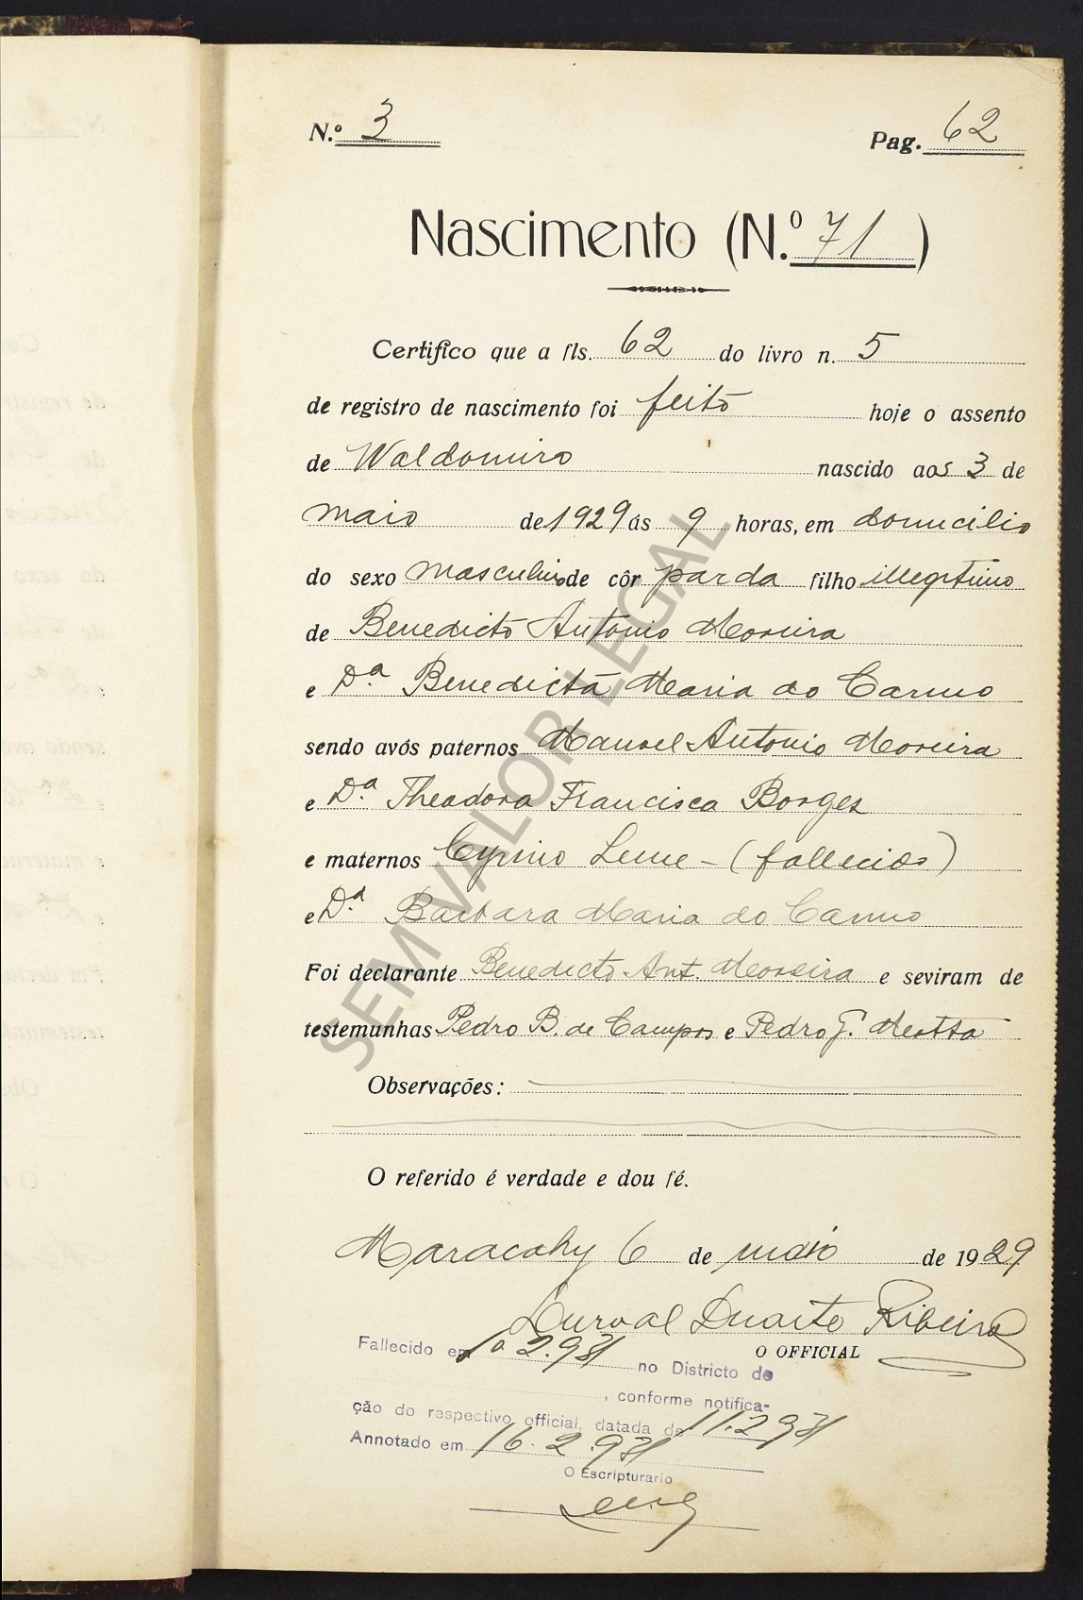 N.º 3
Pag. 62
Nascimento (N.º 71)
Certifico que a fls. 62 do livro n. 5
de registro de nascimento foi feito hoje o assento
de Waldomiro nascido aos 3 de
maio de 1929 ás 9 horas, em domicilio
do sexo masculino de côr parda filho illegitimo
de Benedicto Antonio Moreira
e Dª Benedicta Maria do Carmo
sendo avós paternos Manoel Antonio Moreira
e Dª Theodora Francisca Borges
e maternos Cyrino Leme - (fallecido)
e Dª Barbara Maria do Carmo
Foi declarante Benedicto Ant. Moreira e seviram de
testemunhas Pedro B. de Campos e Pedro G. Motta
Observações:
O referido é verdade e dou fé.
Maracahy 6 de maio de 1929
Durval Duarte Ribeiro
O OFFICIAL
Fallecido em 10.2.931 no Districto de
, conforme notifica-
ção do respectivo official, datada de 11.2.931
Annotado em 16.2.931
O Escripturario
SEM VALOR LEGAL